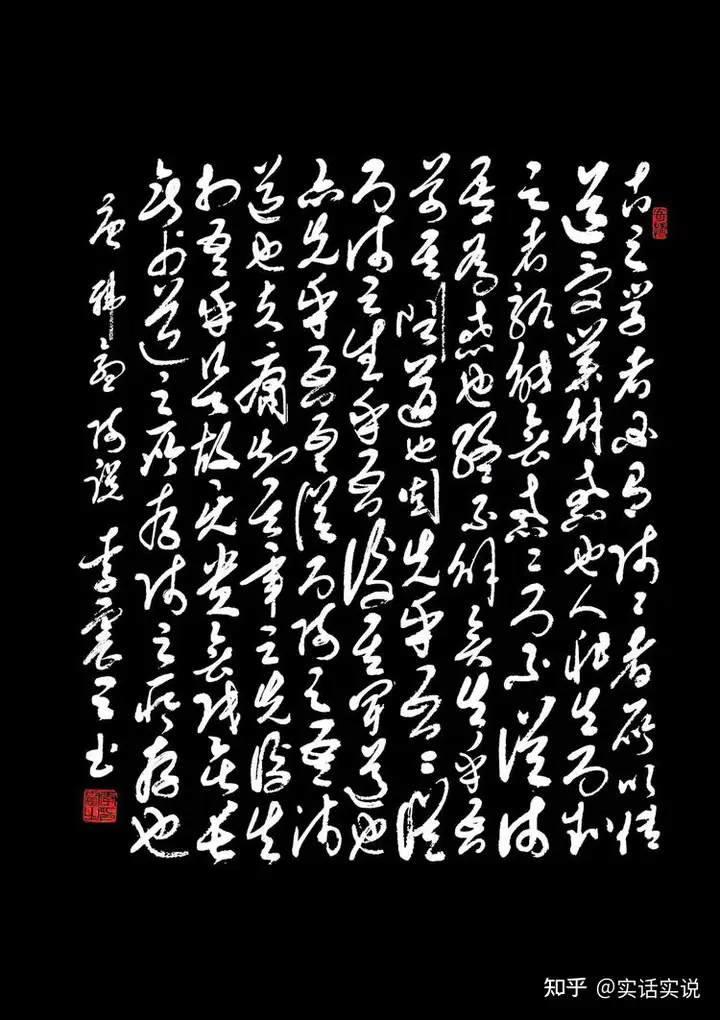 古之学者必有师〻者所以传
道受业解惑也人非生而知
之者孰能无惑〻而不从师
其为惑也终不解矣生乎吾
前其闻道也固先乎吾〻从
而师之生乎吾后其闻道也
亦先乎吾吾从而师之吾师
道也夫庸知其年之先后生
于吾乎是故无贵无贱无长
无少道之所存师之所存也
唐韩愈师说 李震 书
知乎 @实话实说